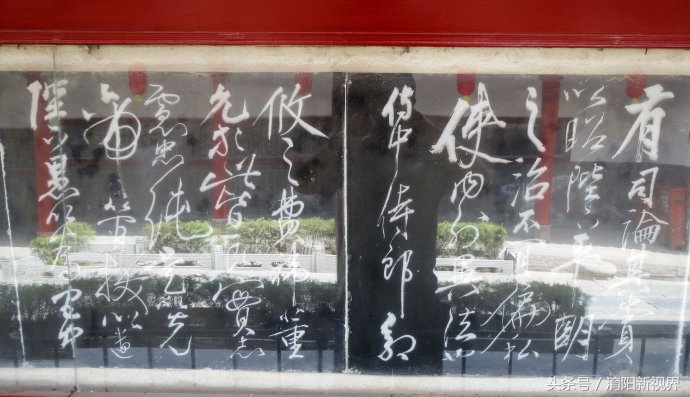 有司論其刑賞
以昭陛下平明
之治不宜偏私
使内外異法
侍中侍郎郭
攸之費禕董
允等此皆良實志
慮忠純是以先
帝簡拔以遺
陛下愚以為宮中
头条号 / 淯阳新视界